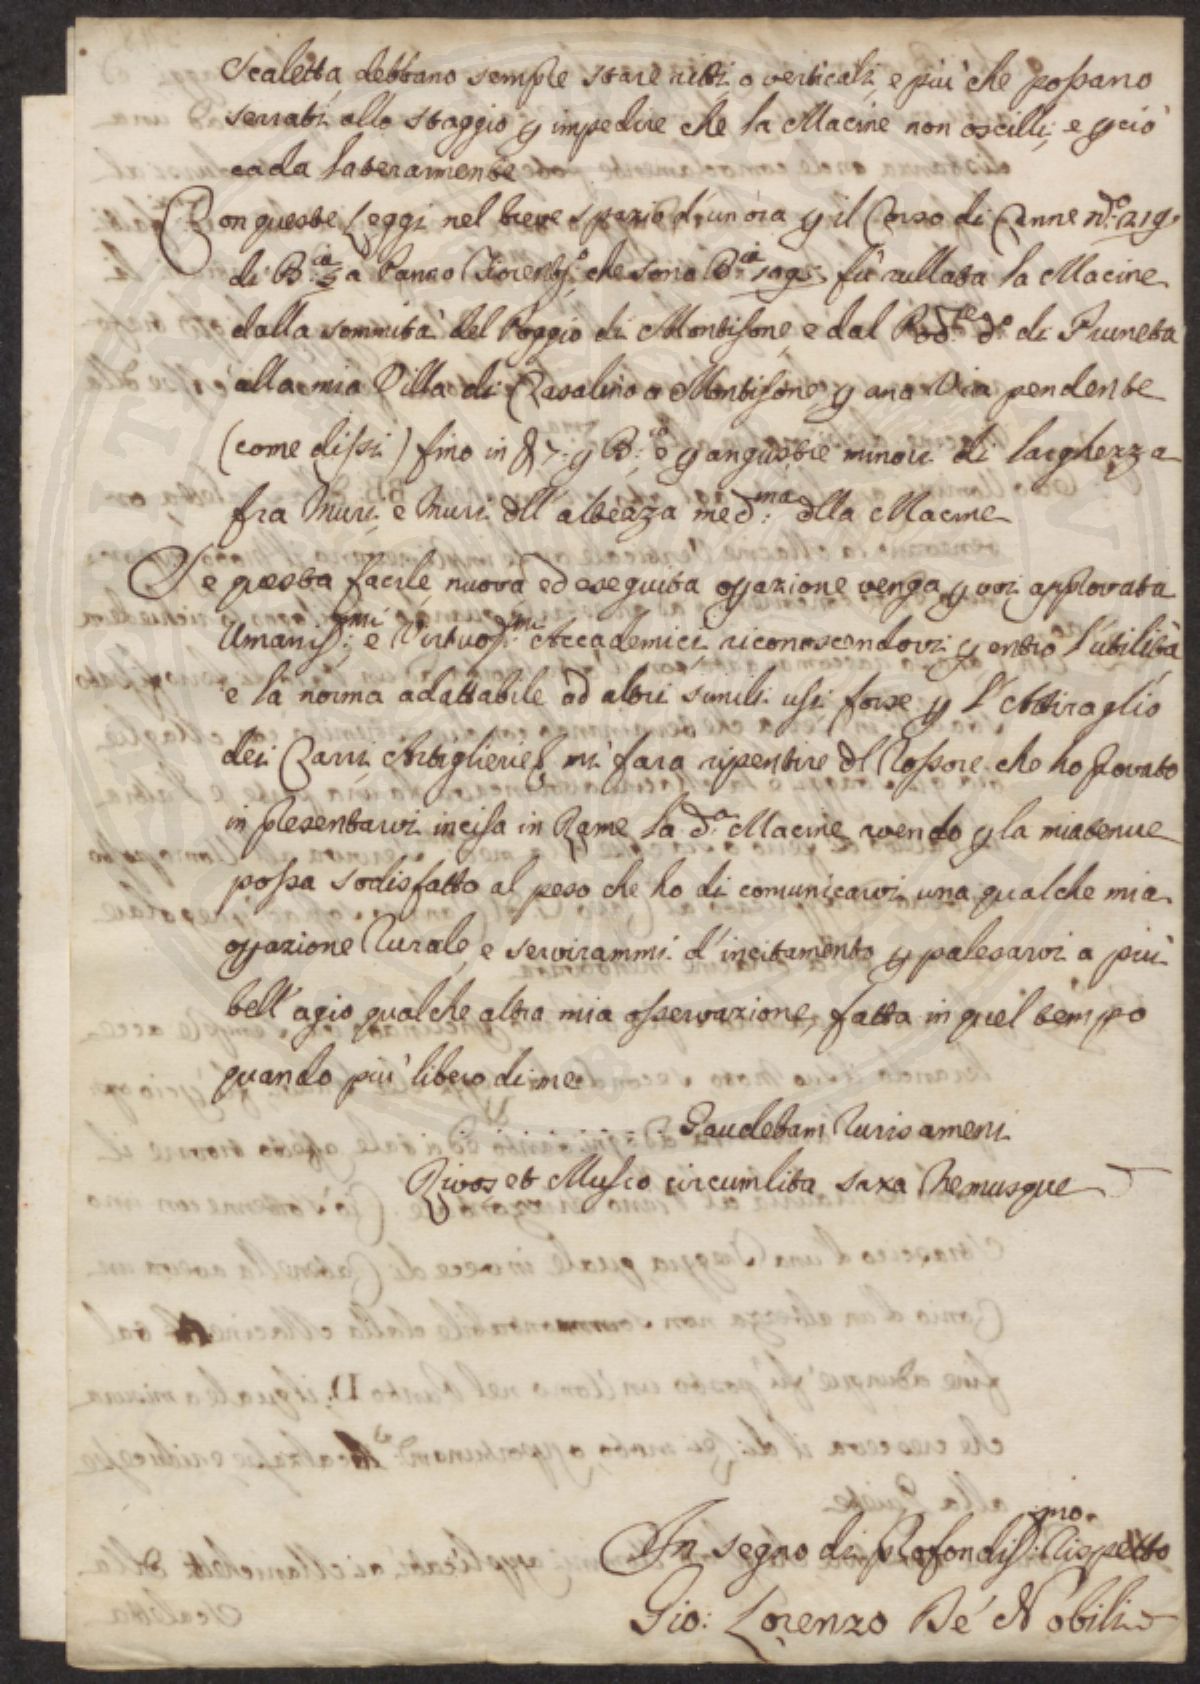 Scaletta, debbano sempre stare ritti o verticali, e più che possano
serrati allo staggio p impedire che la Macine non oscilli, e pciò
cada lateramente
Con queste Leggi nel breve spazio d'un ora p il Corso di Canne n.º 219.
di B.ia 3 a Panno Fiorent.º, che sono B.ia fù rullata la Macine
dalla sommità del Poggio di Montisone e dal Pod.re d.º di Pruneta
alla mia Villa di Casalino a Montisone p una Via pendente
(come dissi) fino in 7: p B.: e p angustie minori di larghezza
fra Muri, e Muri dll' altezza med:ma dlla Macine
Se questa facile nuova ed eseguita opazione venga p voi approvata
Umaniss:mi e Virtuos:mi Accademici, riconoscendovi p entro l'utilità
e la norma adattabile ad altri simili usi forse p l'Attiraglio
dei Carri, Artiglierie, mi farà ripentire dl Rossore che ho provato
in presentarvi incisa in Rame la d.a Macine avendo p la mia tenue
possa sodisfatto al peso che ho di comunicarvi una qualche mia
opazione Rurale, e servirammi d'incitamento p palesarvi a più
bell' agio qualche altra mia osservazione, fatta in quel tempo
quando più libero di me
. . . . . . . . . . . Gaudebam Ruris ameni
Rivos et Musco circumlita saxa Nemusque
In segno di Profondiss:mo Rispetto
Gio: Lorenzo De' Nobili